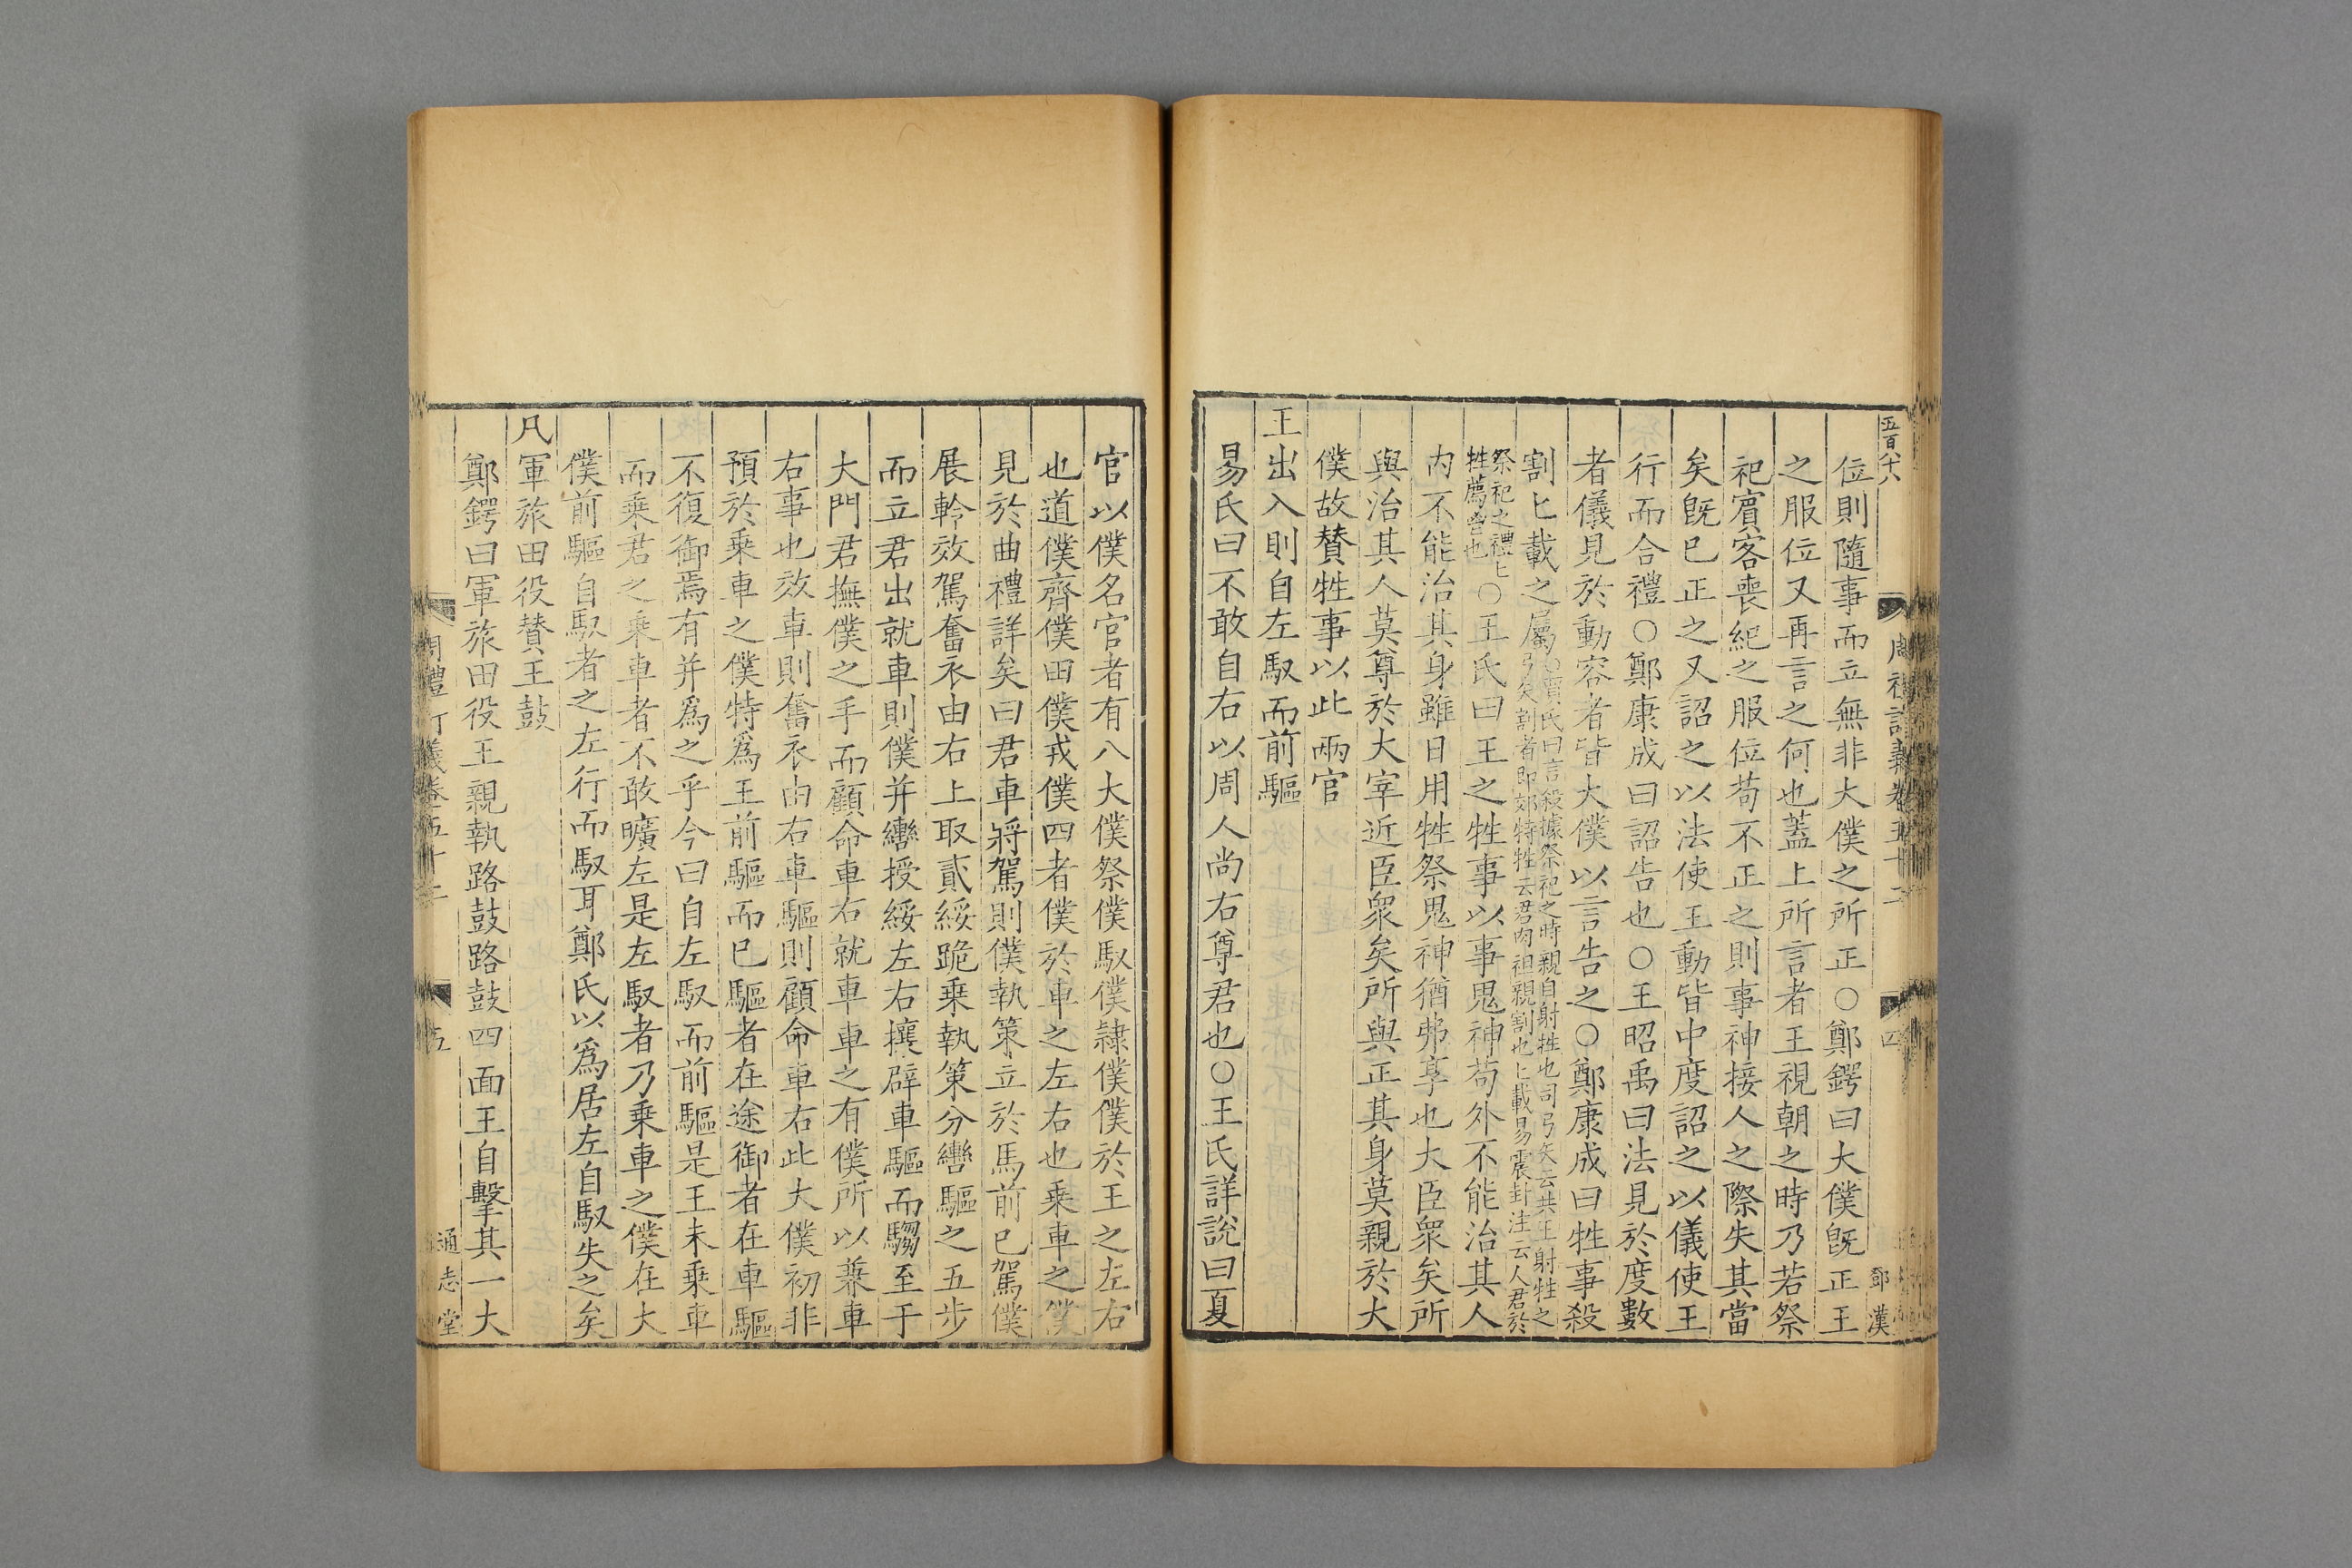 五百八十八
周禮訂義卷五十二
四
鄧漢
位則隨事而立無非大僕之所正○鄭鍔曰大僕旣正王
之服位又再言之何也蓋上所言者王視朝之時乃若祭
祀賓客喪紀之服位苟不正之則事神接人之際失其當
矣旣巳正之又詔之以法使王動皆中度詔之以儀使王
行而合禮○鄭康成曰詔告也○王昭禹曰法見於度數
者儀見於動容者皆大僕以言告之○鄭康成曰牲事殺
割匕載之屬○賈氏曰言殺據祭祀之時親自射牲也司弓矢云共王射牲之
弓矢割者即郊特牲云君肉袒親割也匕載易震卦注云人君於
祭祀之禮匕
牲薦鬯也○王氏曰王之牲事以事鬼神苟外不能治其人
内不能治其身雖日用牲祭鬼神猶弗享也大臣衆矣所
與治其人莫尊於大宰近臣衆矣所與正其身莫親於大
僕故贊牲事以此兩官
王出入則自左馭而前驅
易氏曰不敢自右以周人尚右尊君也○王氏詳說曰夏
官以僕名官者有八大僕祭僕馭僕隷僕僕於王之左右
也道僕齊僕田僕戎僕四者僕於車之左右也乗車之僕
見於曲禮詳矣曰君車將駕則僕執策立於馬前巳駕僕
展軨效駕奮衣由右上取貳綏跪乗執策分轡驅之五步
而立君出就車則僕并轡授綏左右攘辟車驅而騶至于
大門君撫僕之手而顧命車右就車車之有僕所以兼車
右事也效車則奮衣由右車驅則顧命車右此大僕初非
預於乗車之僕特爲王前驅而巳驅者在途御者在車驅
不復御焉有并爲之乎今曰自左馭而前驅是王未乗車
而乗君之乗車者不敢曠左是左馭者乃乗車之僕在大
僕前驅自馭者之左行而馭耳鄭氏以爲居左自馭失之矣
凡軍旅田役贊王鼓
鄭鍔曰軍旅田役王親執路鼓路鼓四面王自擊其一大
周禮訂義卷五十二
五
通志堂